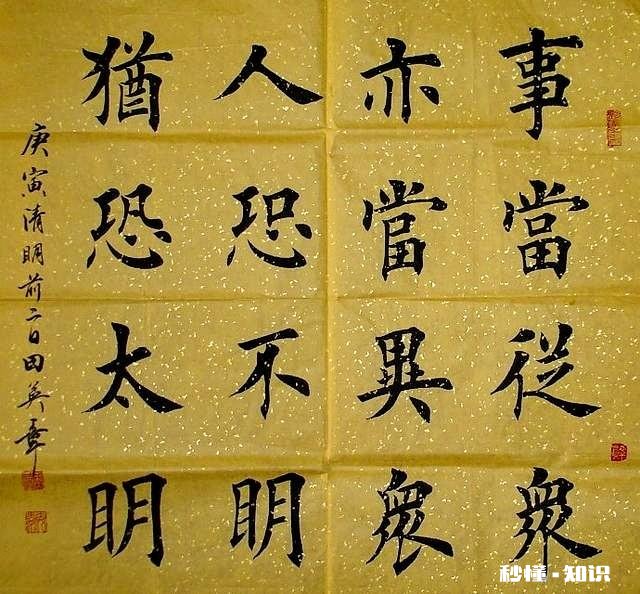 事當從衆
亦當異衆
人恐不明
猶恐太明
庚寅清明前二日田英章
秒懂·知识